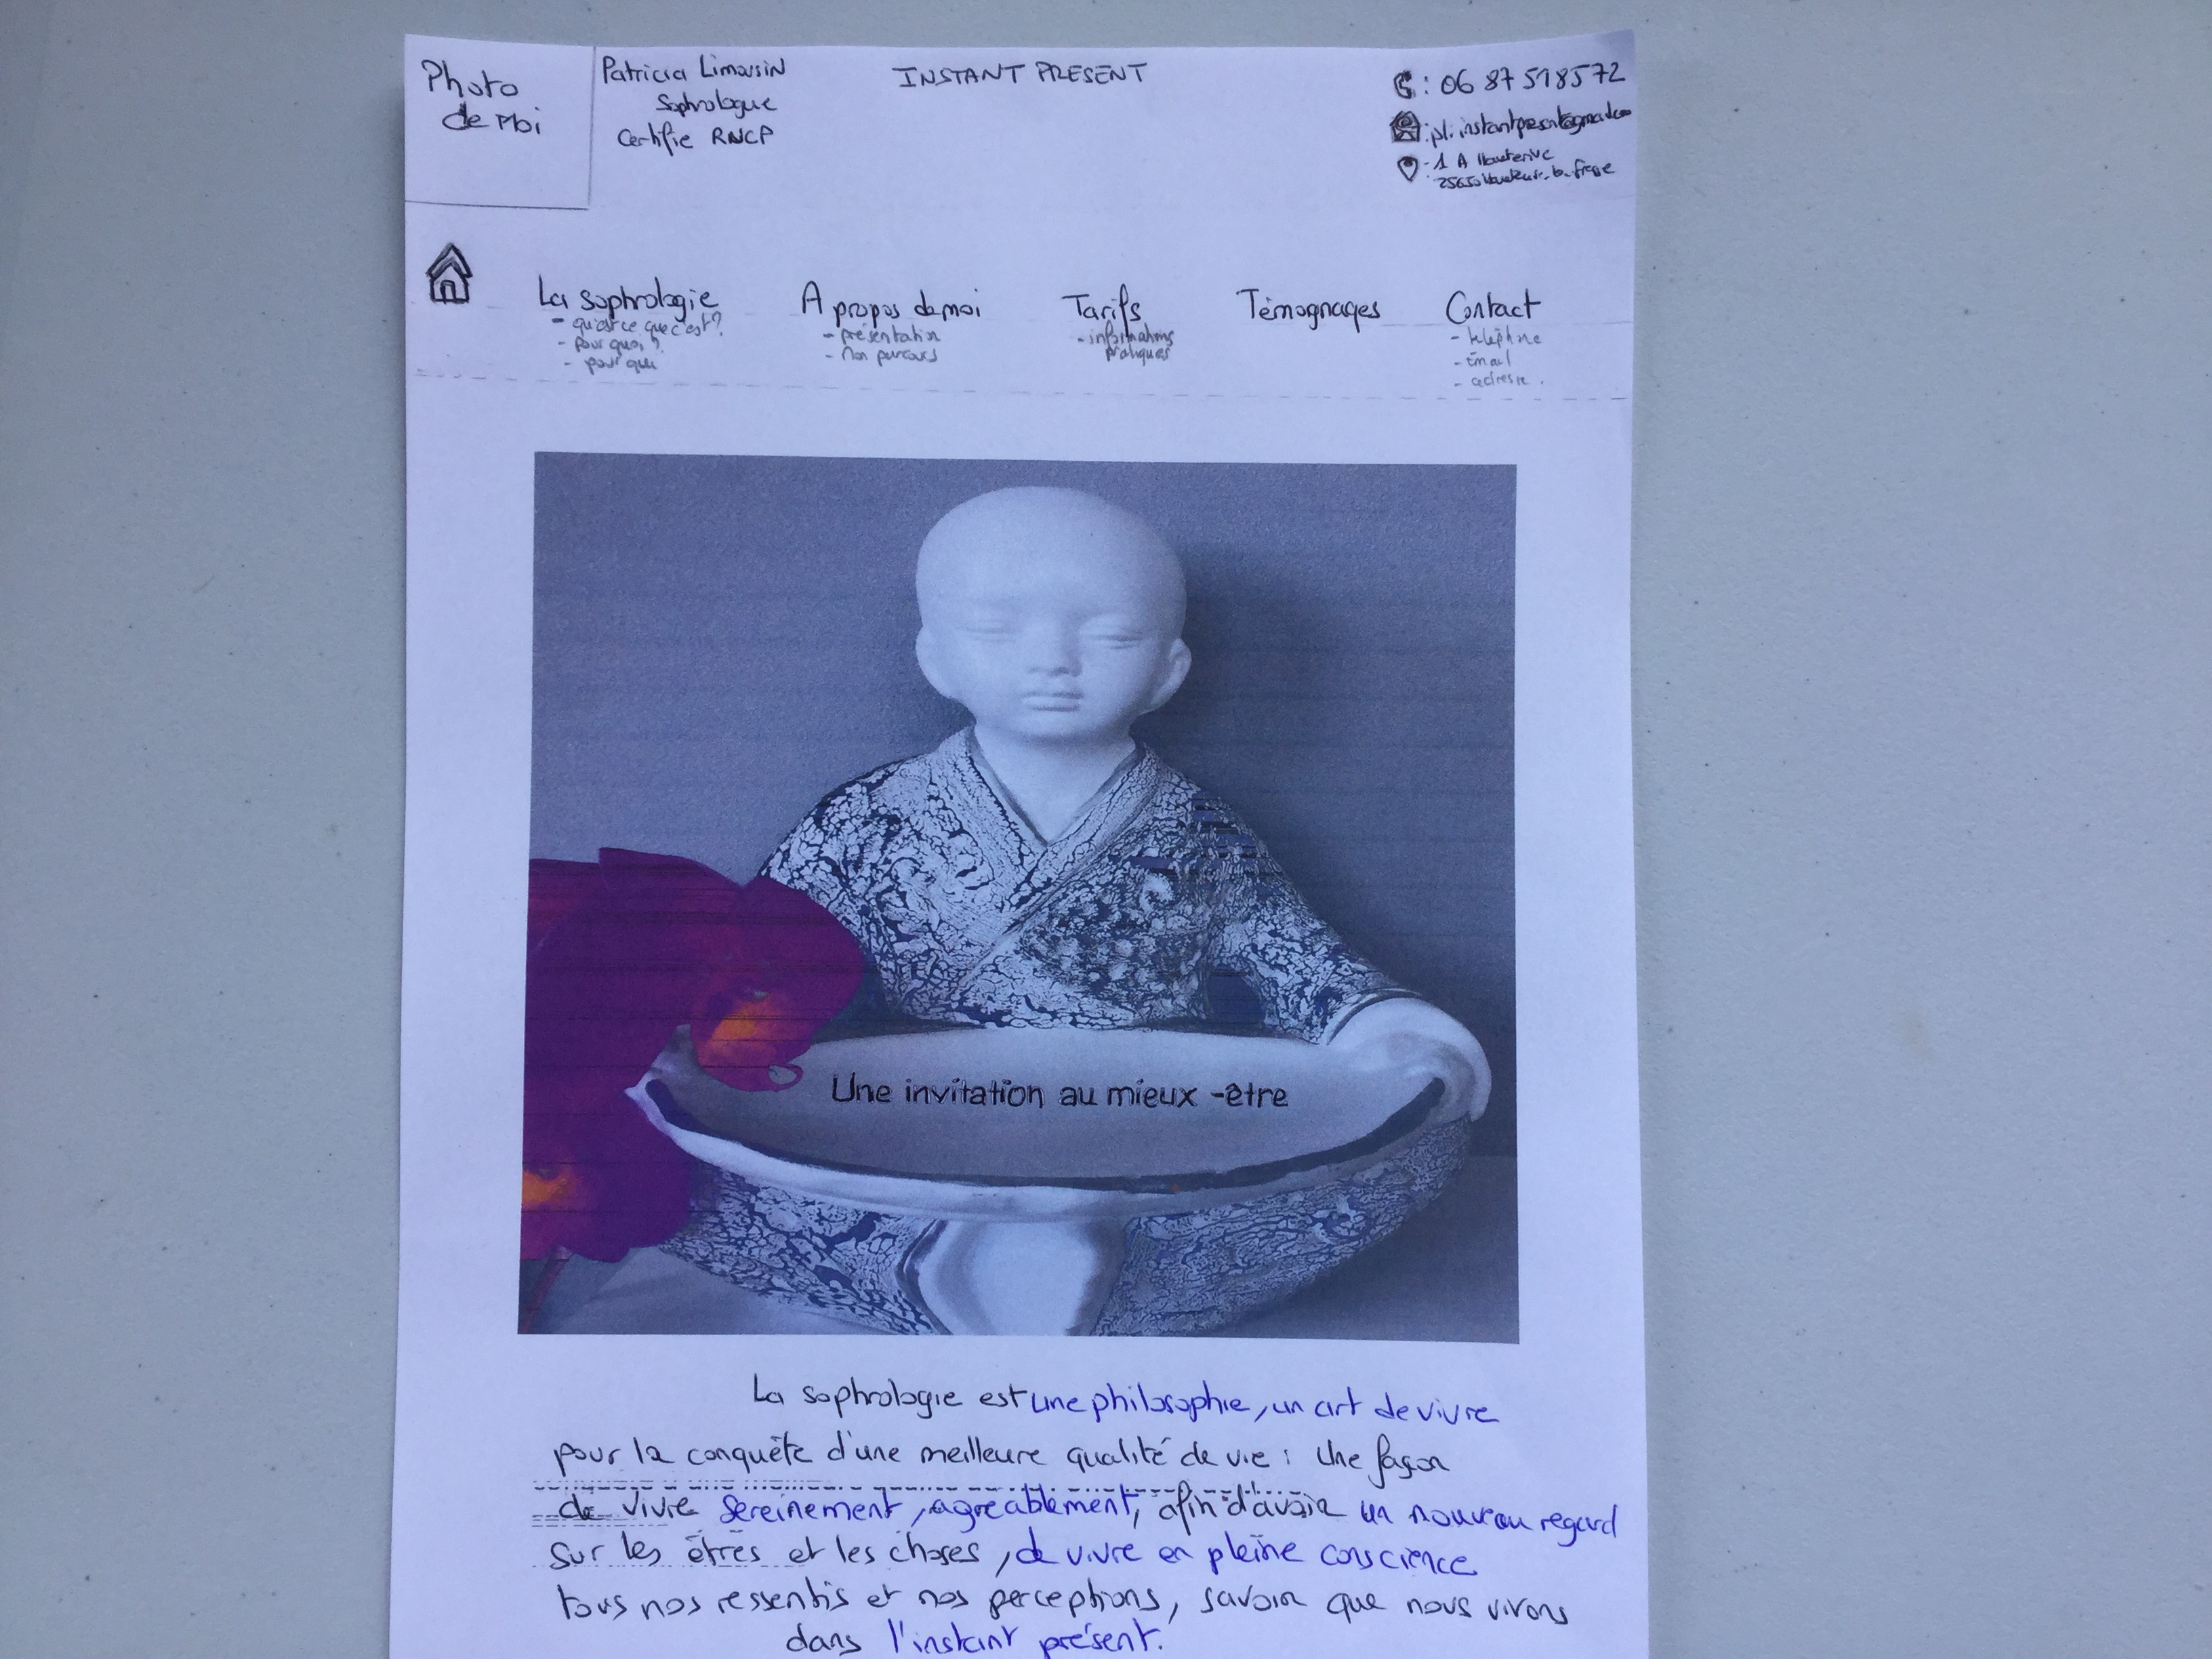 Photo
de Moi
Patricia Limousin
Sophrologue
Certifie RNCP
INSTANT PRESENT
: 06 87 518572
: pl.instantpresent@gmail.com
: 1 A Hauterive
25650 la fresse
La sophrologie
- qu'est ce que c'est?
- pourquoi?
- pour qui
A propos de moi
- présentation
- Mon parcours
Tarifs
- informations
pratiques
Témognages
Contact
- téléphone
- Email
- adresse.
Une invitation au mieux -être
La sophrologie est une philosophie, un art de vivre
pour la conquête d'une meilleure qualité de vie : Une façon
de vivre sereinement, agreablement, afin d'avoir un nouveau regard
sur les êtres et les choses, de vivre en pleine conscience
tous nos ressentis et nos perceptions, savoir que nous vivons
dans l'instant présent.